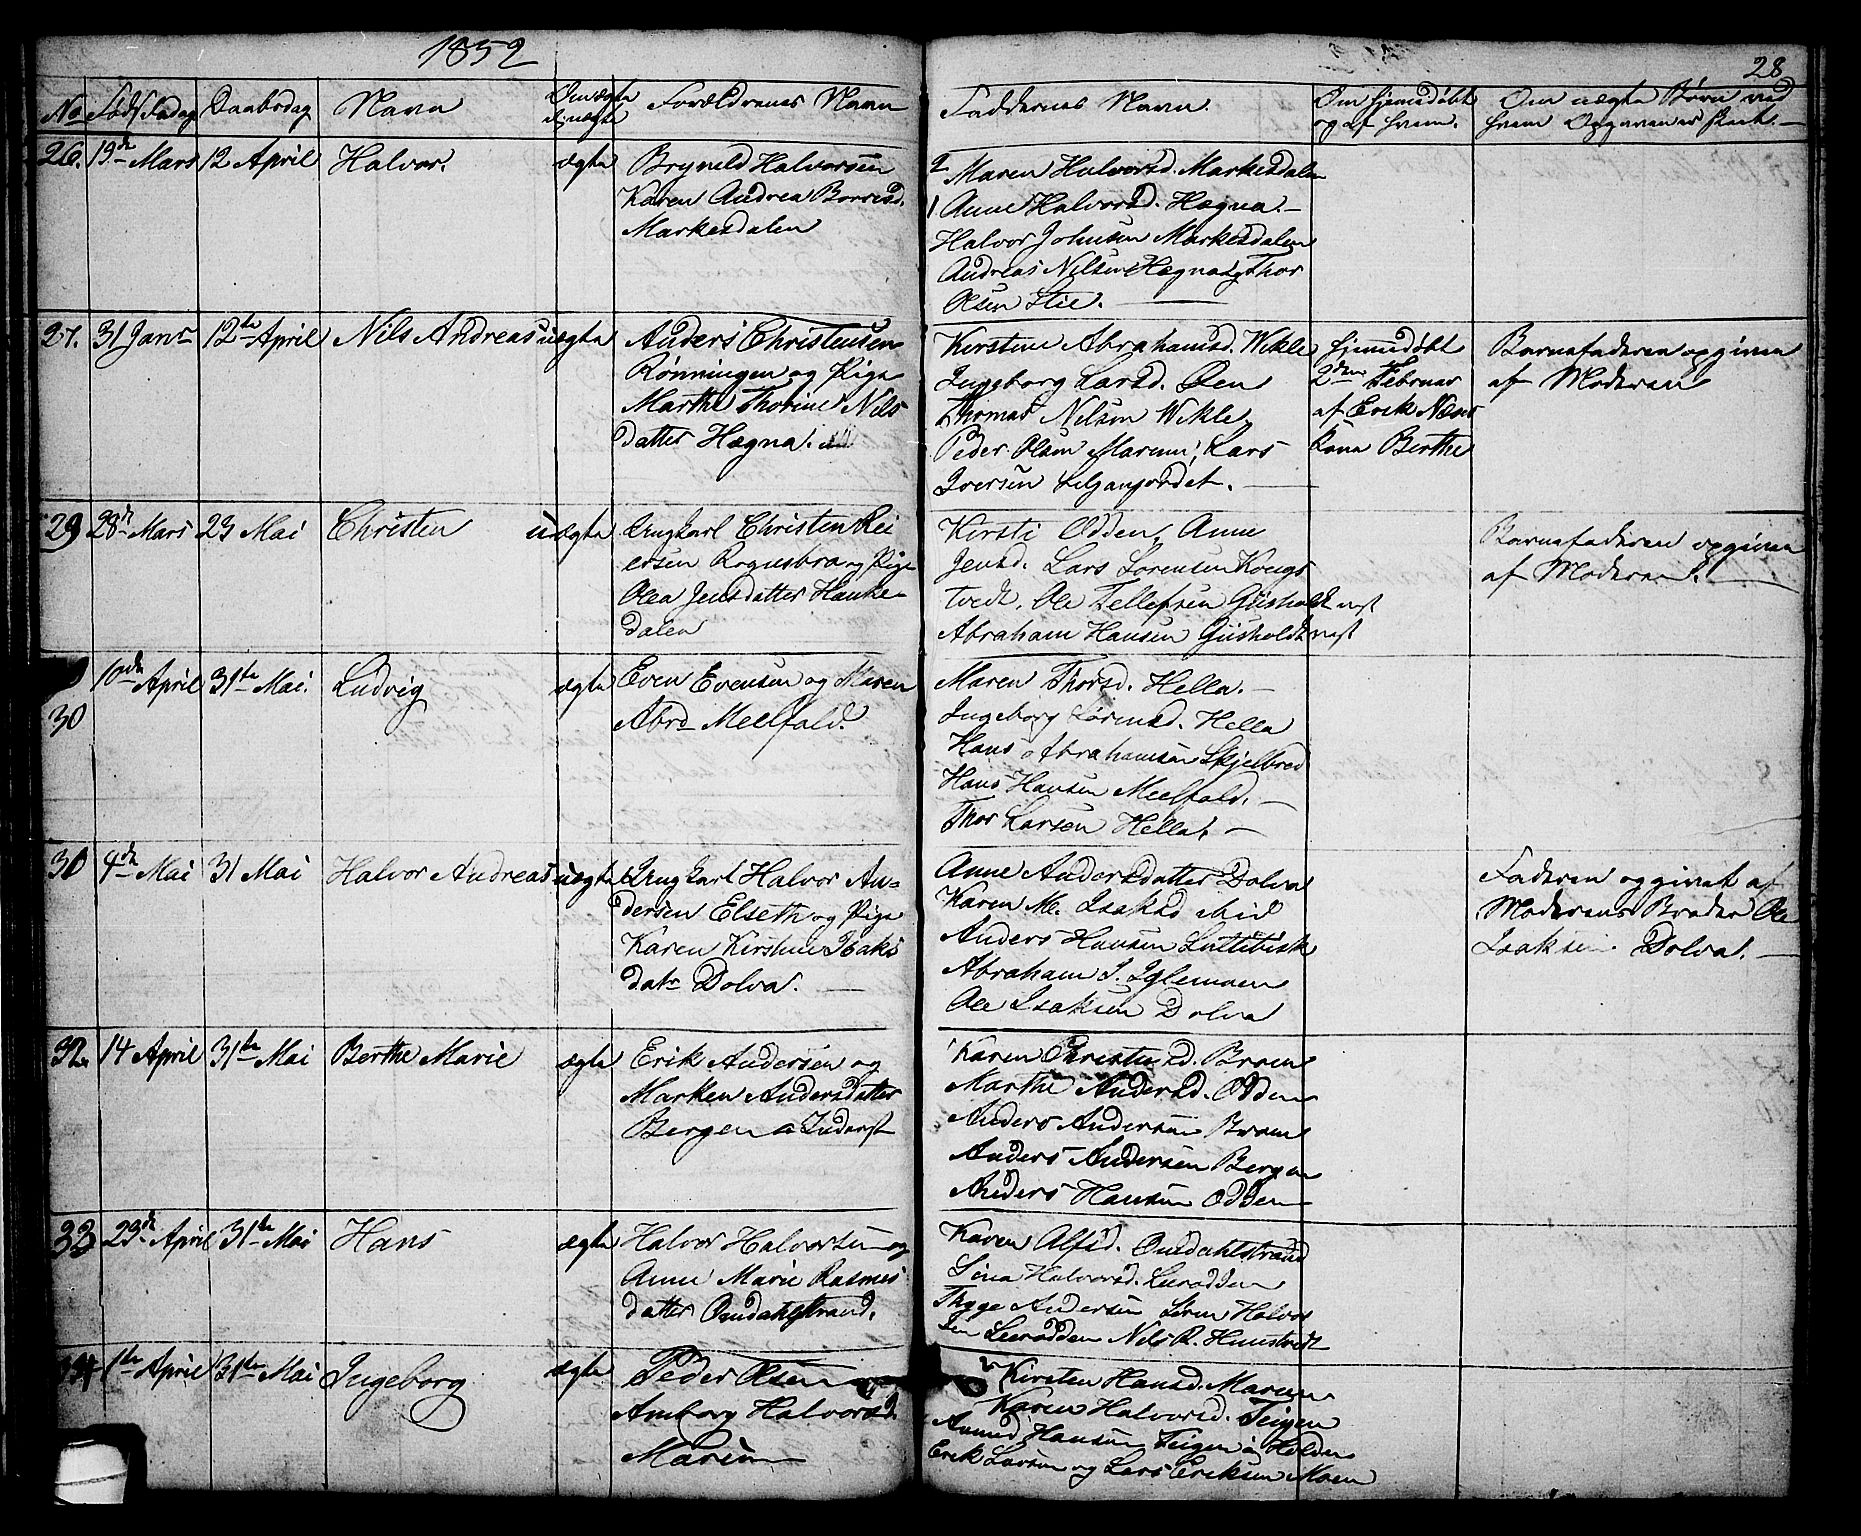 1852
28
No Fødselsdag Daabsdag Navn Om ægte el. uægte Forældrenes Navn Faddernes Navn. Om hjemmedøbt og af hvem. Om uægte Børn ved hvem Opgaven er skeet.
26. 19de Mars 12 April Halvor. ægte
Brynild Halvorsen
Karen Andrea Borresd.
Markesdalen
2 Maren Halvorsd. Markesdalen
1 Anne Halvorsd. Hægna.
Halvor Johnsen Markesdalen
Andreas Nilsen Hægna og Thor
Olsen Stie.
27. 31 Janr 12te April Nils Andreas uægte
Anders Christensen
Rønningen og Pige
Marthe Thorine Nils
datter Hægna.
Kirstine Abrahamsd. Wikle
Ingeborg Larsd. Øen
Thomas Nilsen Wikle,
Peder Olsen Marum, Lars
Iversen
hjemmedøbt
2den Februar
af Erik Næs
Kone Berthe
Barnefaderen opgiven
af Moderen
29 28de Mars 23 Mai Christen uægte
Ungkarl Christen Rei
ersen Rognsbra og Pige
Olea Jensdatter Hauke
dalen
Kirsti Odden, Anne
Jensd. Lars Sørensen Kongs
tvedt, Ole Tellefsen Gusholdt
Abraham Hansen Gusholdt
Barnefaderen opgiven
af Moderen.
30 10de April 31te Mai. Ludvig ægte
Even Evensen og Maren
Abrd Meelfald.
Maren Thorsd. Hella.
Ingeborg Sørensd. Hella
Hans Abrahamsen Skjelbred
Hans Hansen Meelfald.
Thor Larsen Hella.
30 4de Mai 31 Mai Halvor Andreas uægte
Ungkarl Halvor An
dersen Elseth og Pige
Karen Kirstine Isaks
datr Dolva.
Anne Andersdatter Dolva
Karen M. Isaksd
Anders Hansen
Abraham I. Iglemoen
Ole Isaksen Dolva
Faderen opgivet af
Moderens Broder Ole
Isaksen Dolva.
32. 14 April 31te Mai Berthe Marie ægte
Erik Andersen og
Marken Andersdatter
Bergen Inderst
Karen Christensd. Broen
Marthe Andersd. Odden
Anders Andersen Broen
Anders Andersen Bergen
Anders Hansen Odden
33 23de April 31te Mai Hans ægte
Halvor Halvorsen og
Anne Marie Rasmus
datter Omdahlstrand.
Karen Alfsd. Omdahlstrand
Sina Halvorsd. Leerodden
Thyge Andersen Søren Halvor
sen Leerodden Nils R. Hunstvedt
34 1te April 31te Mai Ingeborg ægte
Peder Olsen
Anborg Halvorsd.
Marum
Kirsten Hansd. Marum
Karen Halvorsd. Teigen
Amund Hansen Teigen
Erik Larsen og Lars Eriksen Moen